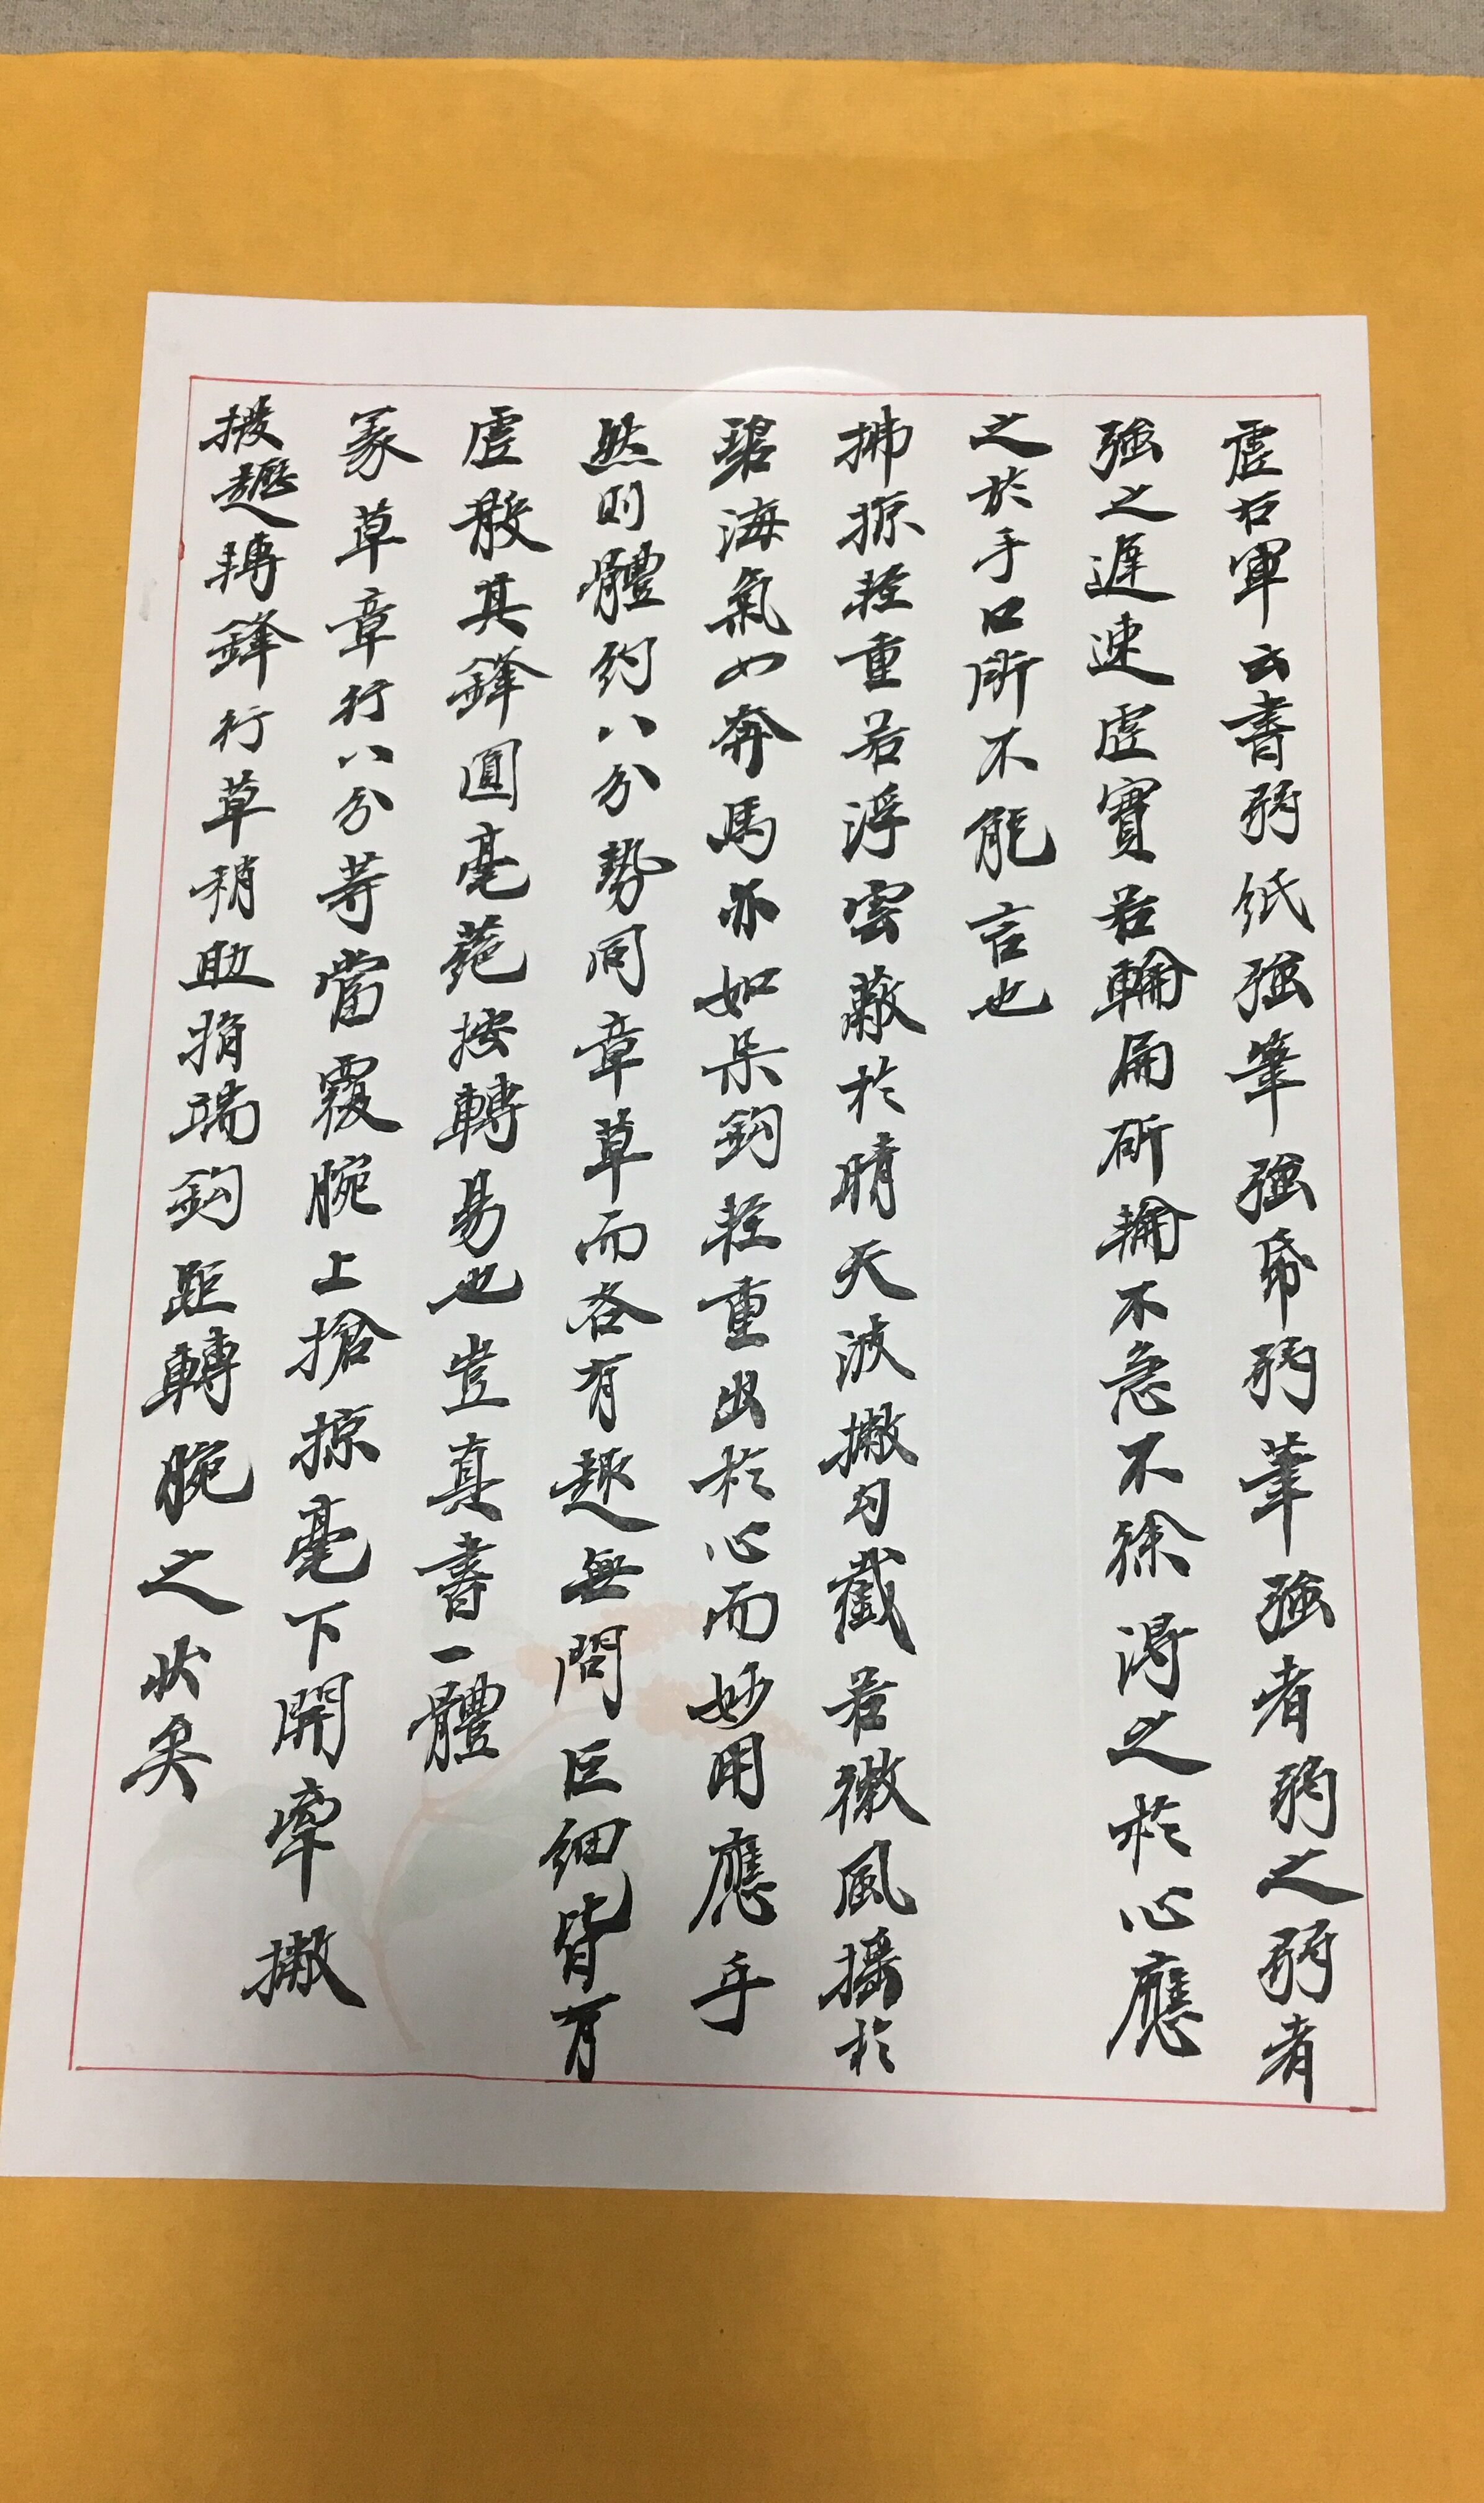 虚右軍云書弱紙強筆強紙弱筆強者弱之弱者
強之遲速虛實若輪扁斫輪不急不徐得之於心應
之於手口所不能言也
拂掠輕重若浮雲蔽於晴天波撇勾截若微風搖於
碧海氣如奔馬亦如朵鈎輕重出於心而妙用應乎
然則體約八分勢同章草而各有趣無問巨細皆有
虛散其鋒圓毫蕝按轉易也豈真書一體
篆草章行八分等當覆腕上搶掠毫下開牽撇
撥趯轉鋒行草稍助指端鈎距轉腕之狀矣